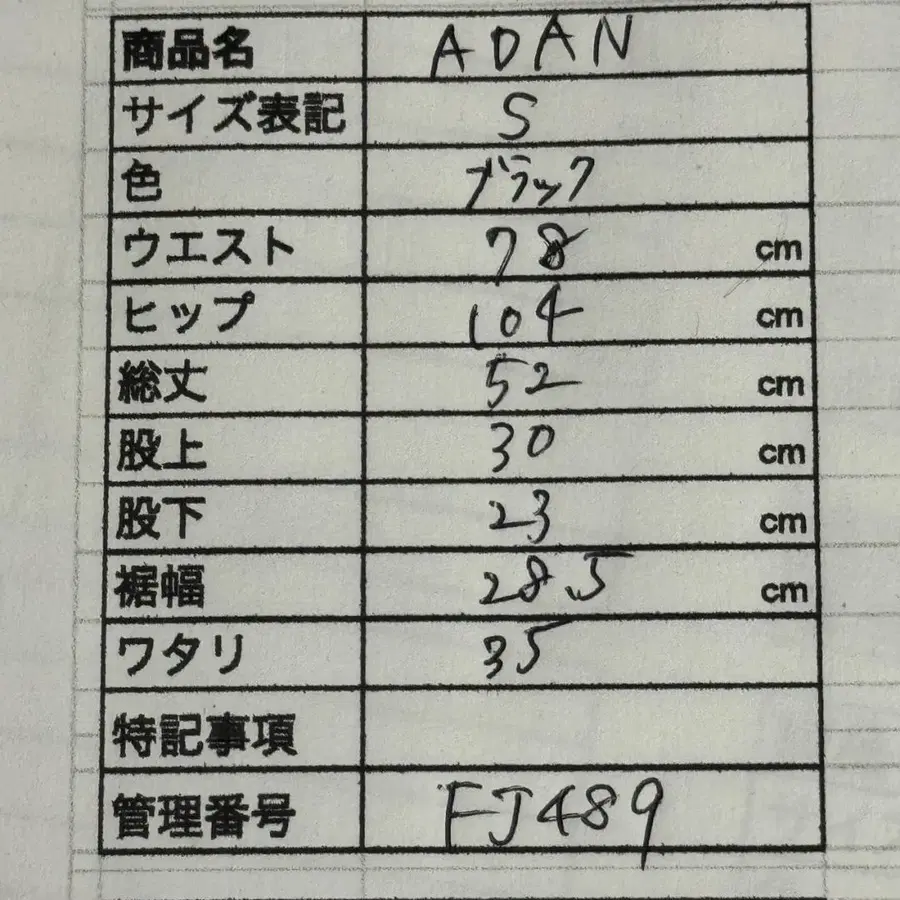 商品名 ADAN
サイズ表記 S
色 ブラック
ウエスト 78 cm
ヒップ 104 cm
総丈 52 cm
股上 30 cm
股下 23 cm
裾幅 28.5 cm
ワタリ 35
特記事項
管理番号 FJ489